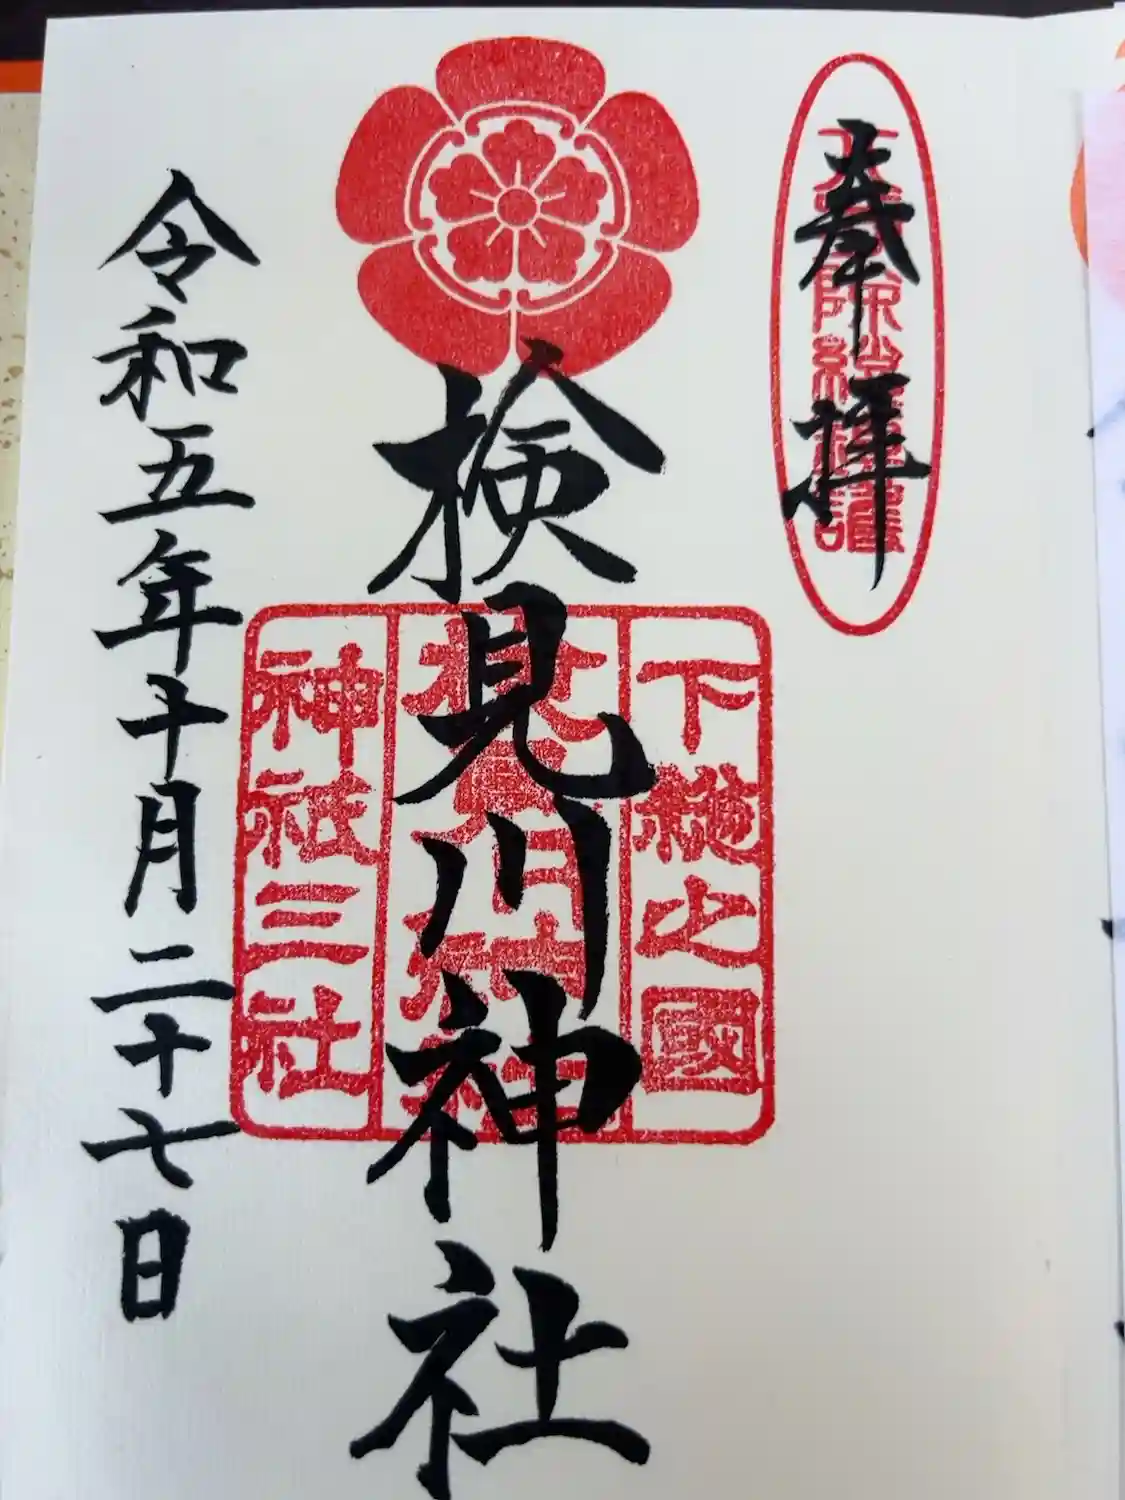 奉拝
下総之國
検見川神社
神祇三社
令和五年十月二十七日